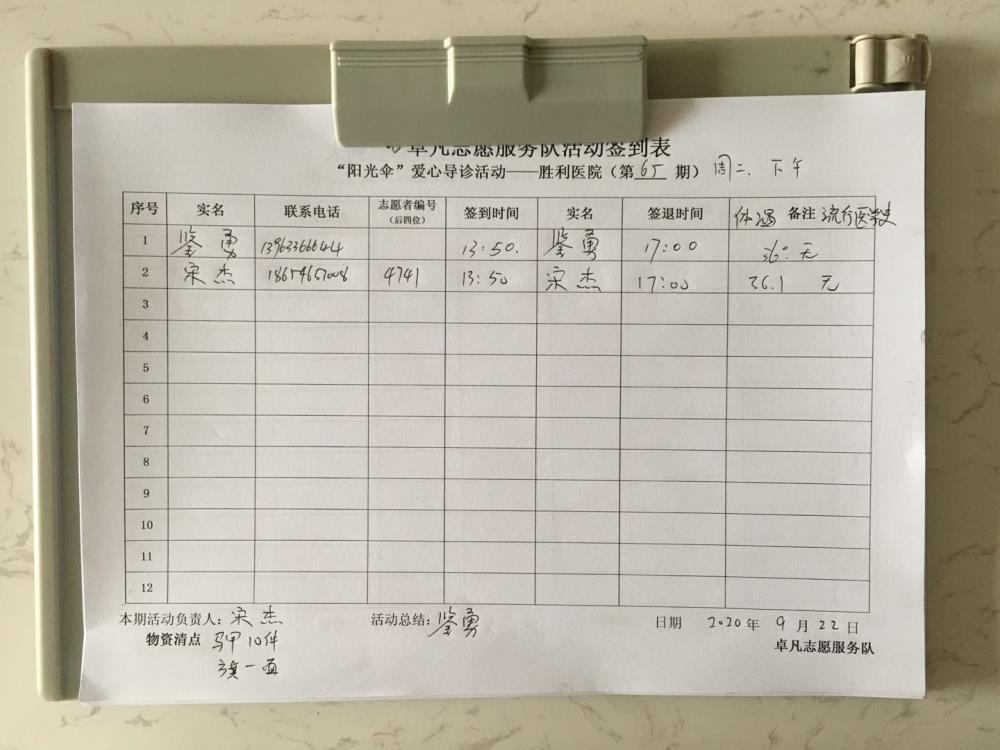 卓凡志愿服务队活动签到表
“阳光伞”爱心导诊活动——胜利医院（第 65 期） 周二、下午
序号 实名 联系电话 志愿者编号（后四位） 签到时间 实名 签退时间 体温 备注 流行医学史
1 鉴勇 13963366644 13:50. 鉴勇 17:00 36° 无
2 宋杰 18654657008 4741 13:50 宋杰 17:00 36.1 无
3
4
5
6
7
8
9
10
11
12
本期活动负责人：宋杰 活动总结：鉴勇 日期 2020年 9月22日
物资清点 马甲10件 卓凡志愿服务队
旗一面